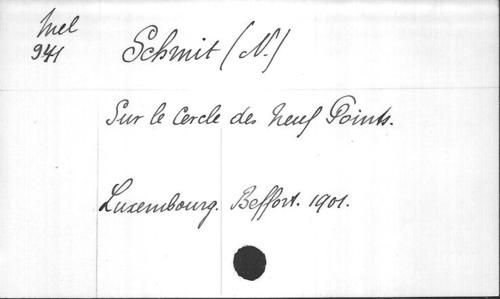 Mel
941
Schmit (N.)
Sur le Cercle des Neuf Points.
Luxembourg. Beffort. 1901.